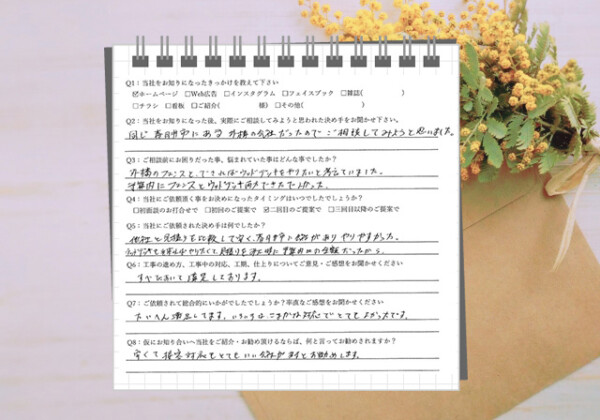 Q1：当社をお知りになったきっかけを教えて下さい
☑ホームページ □Web広告 □インスタグラム □フェイスブック □雑誌( )
□チラシ □看板 □ご紹介( 様) □その他( )
Q2：当社をお知りになった後、実際にご相談してみようと思われた決め手をお聞かせ下さい。
同じ春日井市にある外構の会社だったのでご相談してみようと思いました。
Q3：ご相談前にお困りだった事、悩まれていた事はどんな事でしたか？
外構のフェンスと、できればウッドデッキをやりたいと考えていました。
予算内にフェンスとウッドデッキ両方できたでよかった。
Q4：当社にご依頼頂く事をお決めになったタイミングはいつでしたでしょうか？
□初面談のお打合せで □初回のご提案で ☑二回目のご提案で □三回目以降のご提案で
Q5：当社に依頼された決め手は何でしたか？
他社と見積りを比較して安く、春日井市に会社がありやりやすかった。
ウッドデッキも見積り 予算内の金額だったから。
Q6：工事の進め方、工事中の対応、工期、仕上りについてご意見・ご感想をお聞かせください
すべておいて満足しております。
Q7：ご依頼されて総合的にいかがでしたでしょうか？率直なご感想をお聞かせください
たいへん満足してます。いろいろなこまかな対応でとてもよかったです。
Q8：仮にお知り合いへ当社をご紹介・お勧め頂けるならば、何と言ってお勧めされますか？
安くて接客対応もとてもいい会社がますとお勧めします。